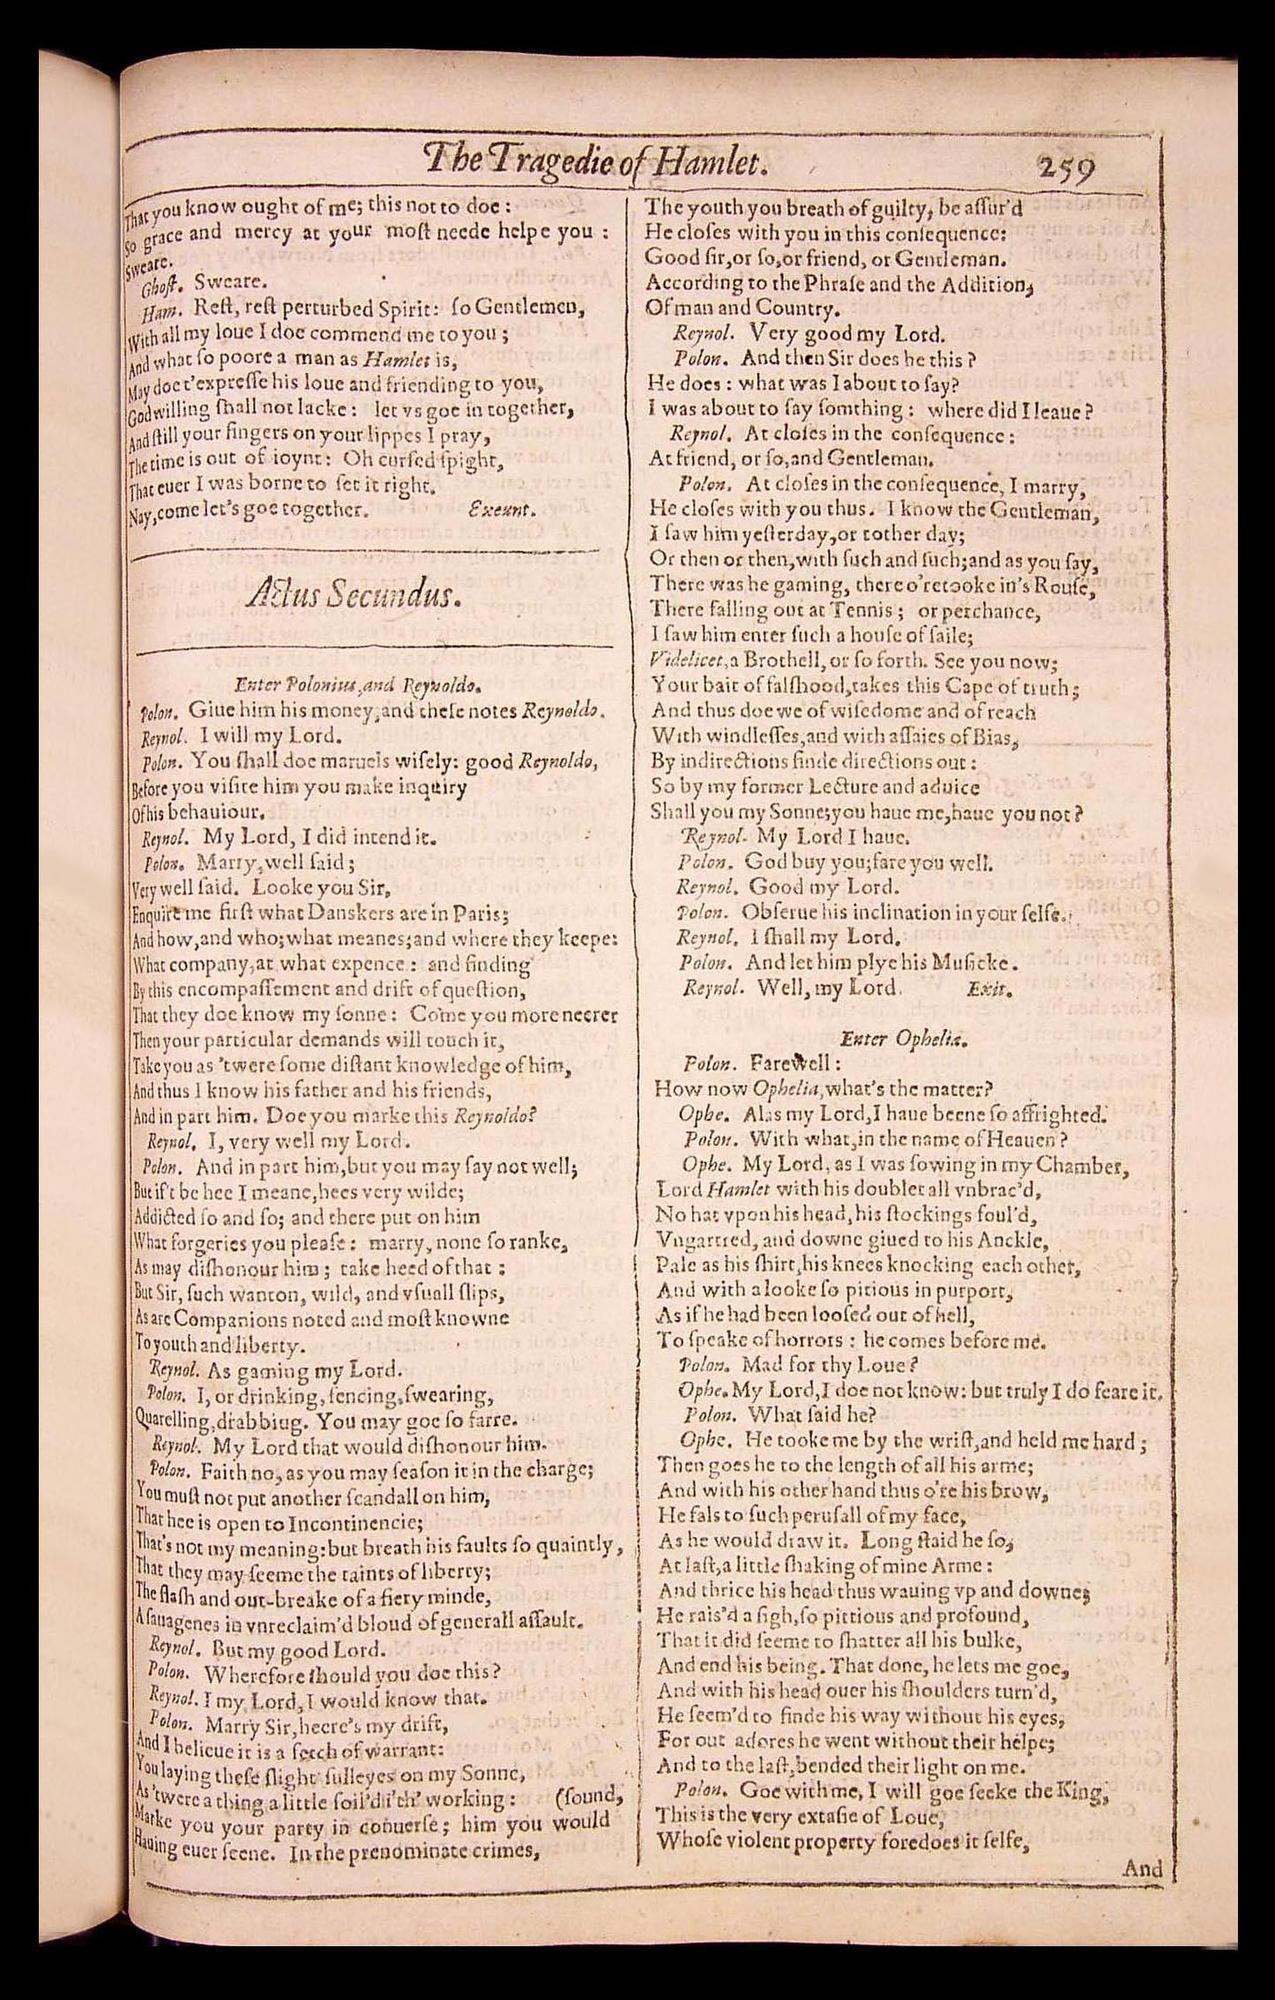 The Tragedie of Hamlet. 259
That you know ought of me; this not to doe:
So grace and mercy at your most neede helpe you:
Sweare.
Ghost. Sweare.
Ham. Rest, rest perturbed Spirit: so Gentlemen,
With all my loue I doe commend me to you;
And what so poore a man as Hamlet is,
May doe t'expresse his loue and friending to you,
God willing shall not lacke: let vs goe in together,
And still your fingers on your lippes I pray,
The time is out of ioynt: Oh cursed spight,
That euer I was borne to set it right.
Nay, come let's goe together. Exeunt.
Actus Secundus.
Enter Polonius, and Reynoldo.
Polon. Giue him his money, and these notes Reynoldo.
Reynol. I will my Lord.
Polon. You shall doe maruels wisely: good Reynoldo,
Before you visite him you make inquiry
Of his behauiour.
Reynol. My Lord, I did intend it.
Polon. Marry, well said;
Very well said. Looke you Sir,
Enquire me first what Danskers are in Paris;
And how, and who; what meanes; and where they keepe:
What company, at what expence: and finding
By this encompassement and drift of question,
That they doe know my sonne: Come you more neerer
Then your particular demands will touch it,
Take you as 'twere some distant knowledge of him,
And thus I know his father and his friends,
And in part him. Doe you marke this Reynoldo?
Reynol. I, very well my Lord.
Polon. And in part him, but you may say not well;
But if't be hee I meane, hees very wilde;
Addicted so and so; and there put on him
What forgeries you please: marry, none so ranke,
As may dishonour him; take heed of that:
But Sir, such wanton, wild, and vsuall slips,
As are Companions noted and most knowne
To youth and liberty.
Reynol. As gaming my Lord.
Polon. I, or drinking, fencing, swearing,
Quarelling, drabbiug. You may goe so farre.
Reynol. My Lord that would dishonour him.
Polon. Faith no, as you may season it in the charge;
You must not put another scandall on him,
That hee is open to Incontinencie;
That's not my meaning: but breath his faults so quaintly,
That they may seeme the taints of liberty;
The flash and out-breake of a fiery minde,
A sauagenes in vnreclaim'd bloud of generall assault.
Reynol. But my good Lord.
Polon. Wherefore should you doe this?
Reynol. I my Lord, I would know that.
Polon. Marry Sir, heere's my drift,
And I belieue it is a fetch of warrant:
You laying these slight sulleyes on my Sonne,
As 'twere a thing a little soil'd i'th' working: (sound,
Marke you your party in conuerse; him you would
Hauing euer seene. In the prenominate crimes,
The youth you breath of guilty, be assur'd
He closes with you in this consequence:
Good sir, or so, or friend, or Gentleman.
According to the Phrase and the Addition,
Of man and Country.
Reynol. Very good my Lord.
Polon. And then Sir does he this?
He does: what was I about to say?
I was about to say somthing: where did I leaue?
Reynol. At closes in the consequence:
At friend, or so, and Gentleman.
Polon. At closes in the consequence, I marry,
He closes with you thus. I know the Gentleman,
I saw him yesterday, or tother day;
Or then or then, with such and such; and as you say,
There was he gaming, there o'retooke in's Rouse,
There falling out at Tennis; or perchance,
I saw him enter such a house of saile;
Videlicet, a Brothell, or so forth. See you now;
Your bait of falshood, takes this Cape of truth;
And thus doe we of wisedome and of reach
With windlesses, and with assaies of Bias,
By indirections finde directions out:
So by my former Lecture and aduice
Shall you my Sonne; you haue me, haue you not?
Reynol. My Lord I haue.
Polon. God buy you; fare you well.
Reynol. Good my Lord.
Polon. Obserue his inclination in your selfe.
Reynol. I shall my Lord.
Polon. And let him plye his Musicke.
Reynol. Well, my Lord. Exit.
Enter Ophelia.
Polon. Farewell:
How now Ophelia, what's the matter?
Ophe. Alas my Lord, I haue beene so affrighted.
Polon. With what, in the name of Heauen?
Ophe. My Lord, as I was sowing in my Chamber,
Lord Hamlet with his doublet all vnbrac'd,
No hat vpon his head, his stockings foul'd,
Vngartred, and downe giued to his Anckle,
Pale as his shirt, his knees knocking each other,
And with a looke so pitious in purport,
As if he had been loosed out of hell,
To speake of horrors: he comes before me.
Polon. Mad for thy Loue?
Ophe. My Lord, I doe not know: but truly I do feare it.
Polon. What said he?
Ophe. He tooke me by the wrist, and held me hard;
Then goes he to the length of all his arme;
And with his other hand thus o're his brow,
He fals to such perusall of my face,
As he would draw it. Long staid he so,
At last, a little shaking of mine Arme:
And thrice his head thus wauing vp and downe;
He rais'd a sigh, so pittious and profound,
That it did seeme to shatter all his bulke,
And end his being. That done, he lets me goe,
And with his head ouer his shoulders turn'd,
He seem'd to finde his way without his eyes,
For out adores he went without their helpe;
And to the last, bended their light on me.
Polon. Goe with me, I will goe seeke the King,
This is the very extasie of Loue,
Whose violent property foredoes it selfe,
And